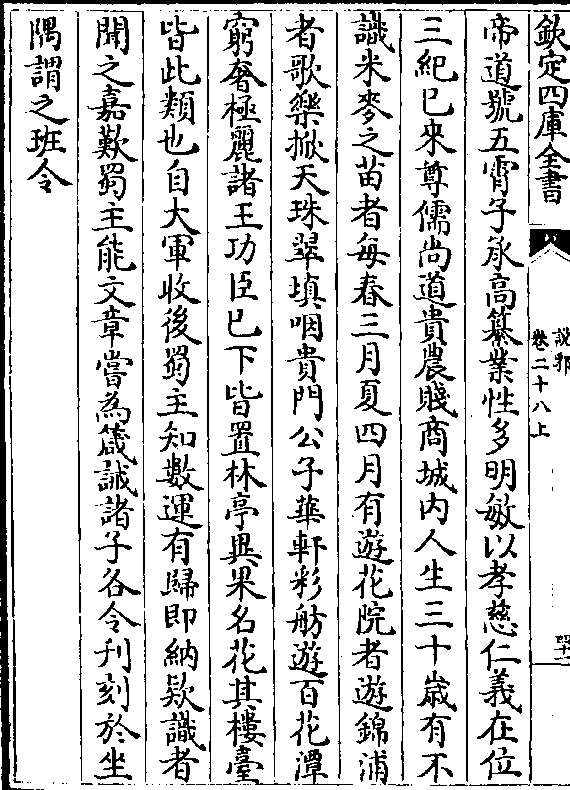 欽定四庫全書
說郛
卷二十八上
帝道號五霄子承高纂業性多明敏以孝慈仁義在位
三紀已來尊儒尚道貴農賤商城内人生三十嵗有不
識米麥之苗者每春三月夏四月有遊花院者遊錦浦
者歌樂掀天珠翠填咽貴門公子華軒彩舫遊百花潭
窮奢極麗諸王功臣已下皆置林亭異果名花其樓臺
皆此類也自大軍收後蜀主知數運有歸即納欵識者
聞之嘉歎蜀主能文章嘗為箴誡諸子各令刋刻於坐
隅謂之班令